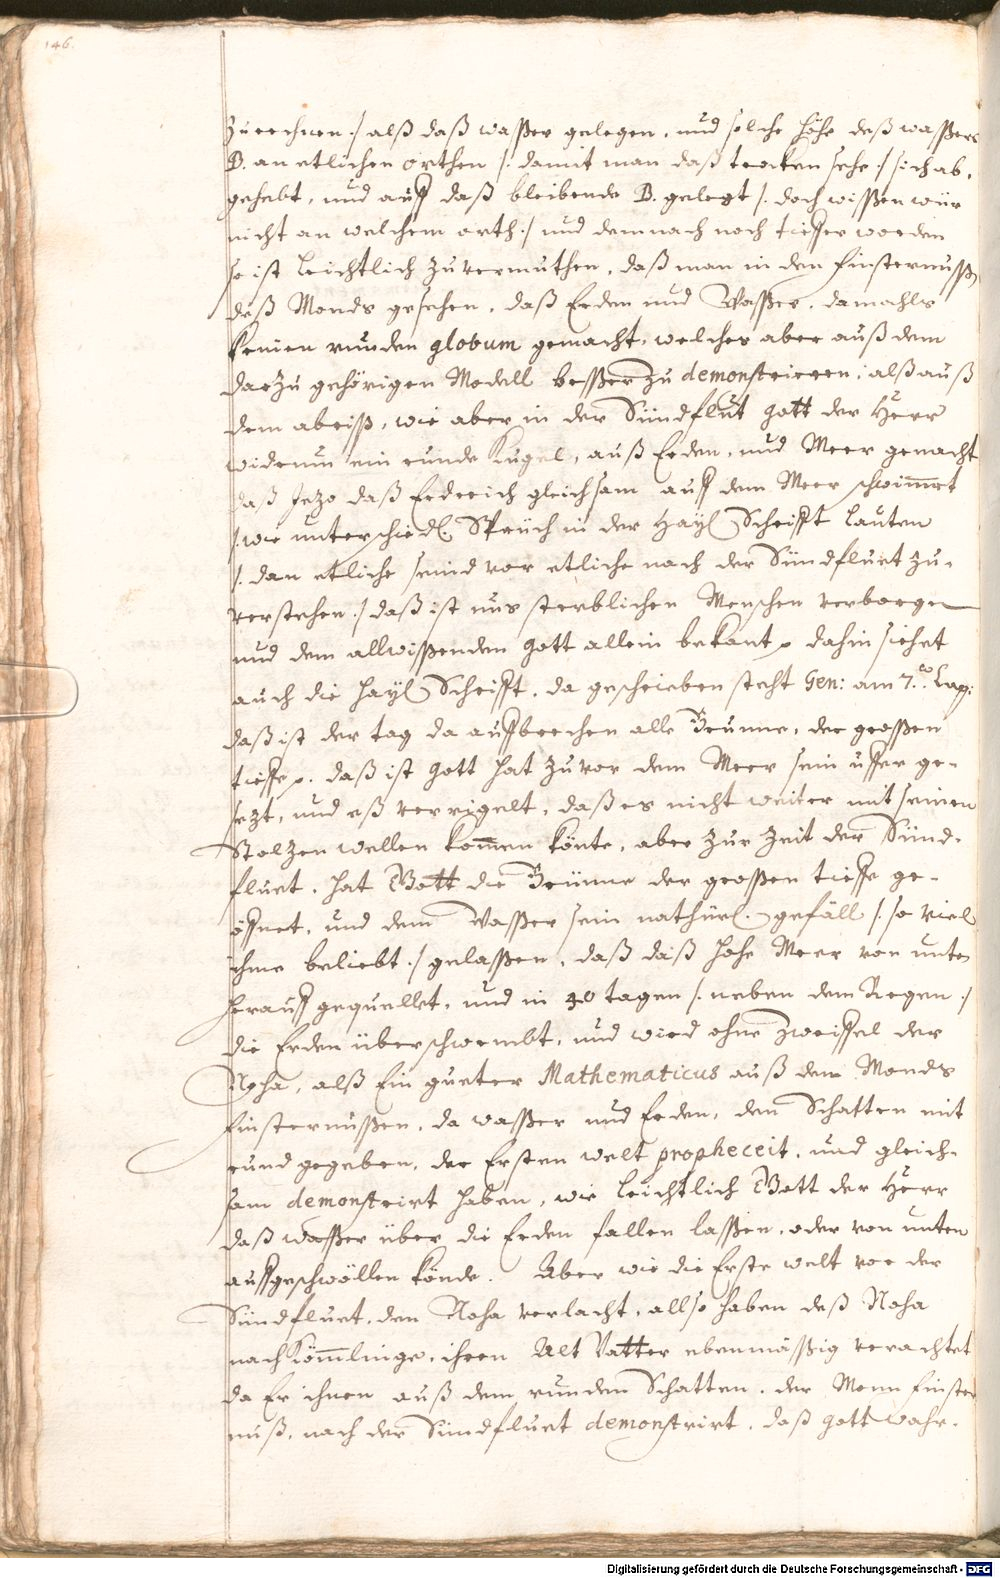 146.
zurechnen ./ alß daß wasser gelegen, und solche höhe deß wassers
B. an etlichen orthen /. damit man daß trocken sehe ./ sich ab,
gehebt, und auff daß bleibende B. gelegt /. doch wissen wür
nicht an welchem orth ./ und demnach noch tieffer worden
so ist leichtlich zuvermuthen, daß man in den finsternuss
deß Monds gesehen, daß Erden und Wasser, damahls
keinen runden globum gemacht, welches aber auß dem
darzu gehörigen Modell besser zu demonstrieren, alß auß
dem abriß, wie aber in der Sündflut Gott der Herr
widerum ein runde Kugel, auß Erden, und Meer gemacht
daß Jezo daß Erdreich gleichsam auff dem Meer schwimmet
/. wie unterschiedl. Sprüch in der Hayl Schrifft lauten
/. dan etliche seind vor etliche nach der Sündfluet zu-
verstehen ./ daß ist uns sterblichen Menschen verborgen
und dem allwissenden Gott allein bekant, dahin siehet
auch die Hayl Schrifft, da geschrieben steht Gen: am 7. Cap:
daß ist der tag da auffbrechen alle Brunne, der grossen
tieffe, daß ist Gott hat zuvor dem Meer sein uffer ge-
sezt, und eß verrigelt, daß es nicht weiter mit seinen
Stolzen wellen kommen könte, aber zur Zeit der Sünd-
fluet, hat Gott die Brünne der grossen tieffe ge-
öffnet, und dem Wasser sein nathürl. gefäll /. so viel
ihme beliebt ./ gelassen, daß daß hohe Meer von unten
herauff gequellet, und in 40 tagen /. neben dem Regen ./
die Erden überschwembt, und wird ohne Zweiffel der
Noha, alß Ein gueter Mathematicus auß dem Monds
finsternussen, da wasser und Erden, den Schatten nit
rund gegeben, der Ersten welt propheceit, und gleich-
sam demonstrirt haben, wie leichtlich Gott der Herr
daß wasser über die Erden fallen lassen, oder von unten
auffgeschwöllen könde. Aber wie die Erste welt vor der
Sündfluet, den Noha verlacht, allso haben deß Noha
nachkömmlinge, ihren Alt Vatter ebenmässig verachtet
da Er ihnen auß dem runden Schatten, der Monn finster
nuß, nach der Sündfluet demonstrirt, daß Gott wahr-
Digitalisierung gefördert durch die Deutsche Forschungsgemeinschaft - DFG